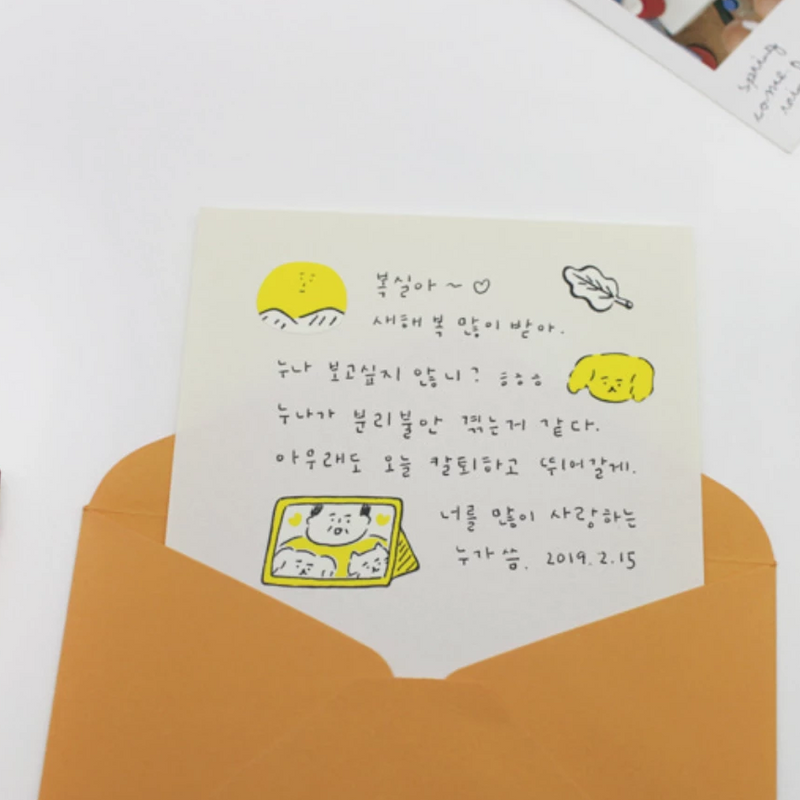 복실아 ~ ♡
새해 복 많이 받아.
누나 보고싶지 않니? ㅎㅎㅎ
누나가 분리불안 겪는거 같다.
아무래도 오늘 칼퇴하고 뛰어갈게.
너를 많이 사랑하는
누가 씀. 2019. 2. 15
spring
come